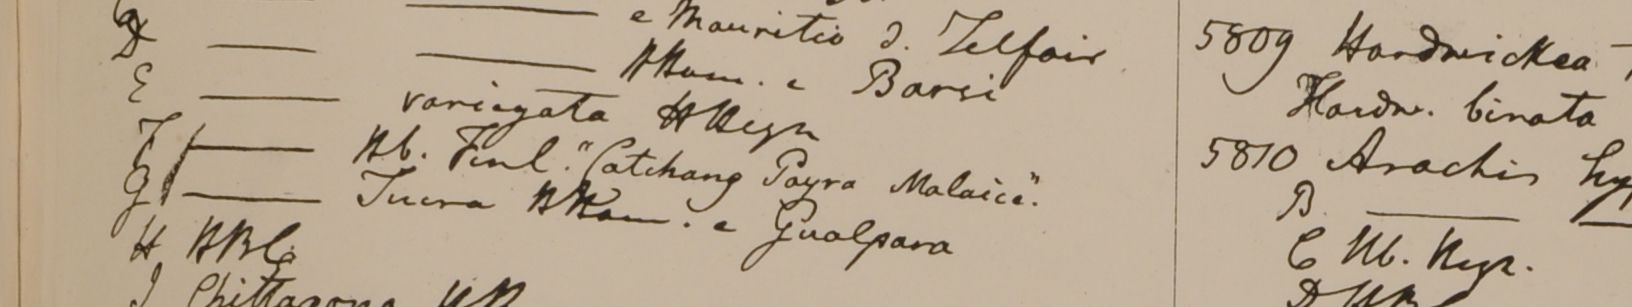 e Mauritio d. Telfair
D — — HHam. e Barsi
E — variegata HHeyn
F — Hb. Finl. "Catchang Payra Malaice".
G — Tuera HHam. e Gualpara
H HBC
I Chittagong HB
5809 Hardwickea
Hardw. binata
5810 Arachis hyp
B —
C Hb. Heyn.
D HBC